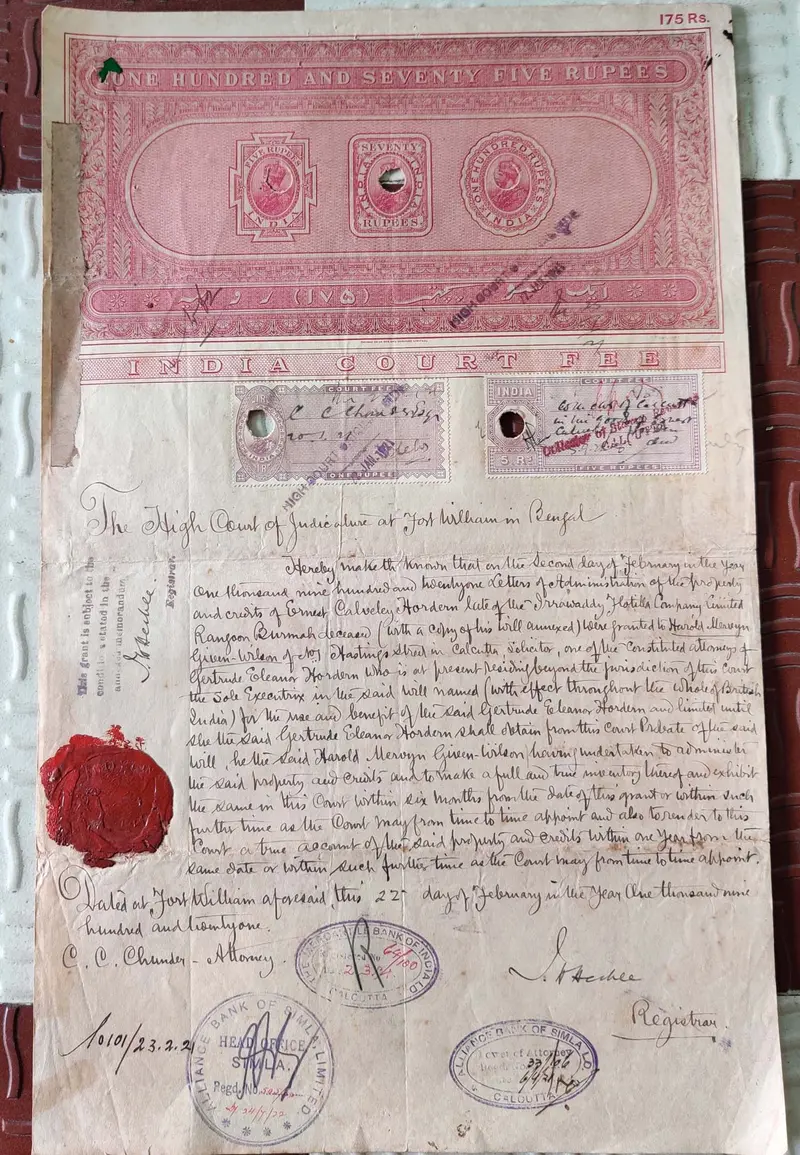 175 Rs.
ONE HUNDRED AND SEVENTY FIVE RUPEES
FIVE RUPEES
INDIA
SEVENTY
INDIA INDIA
RUPEES.
ONE HUNDRED RUPEES
INDIA
HIGH COURT
(۱۷۵)
INDIA COURT FEE
COURT FEE
C C Chunder Esqr
ONE RUPEE
HIGH COURT
JAN. 1921
COURT FEE
INDIA
5 Rs
Collector of Stamp Revenue
Calcutta
FIVE RUPEES
The High Court of Judicature at Fort William in Bengal
This grant is subject to the
condition stated in the
annexed memorandum.
Registrar.
Hereby maketh known that on the Second day of February in the Year
One thousand nine hundred and twentyone Letters of Administration of the property
and credits of Ernest Calveley Hordern late of the Irrawaddy Flotilla Company Limited
Rangoon Burmah deceased (with a copy of his will annexed) were granted to Harold Mervyn
Given-Wilson of No 7 Hastings Street in Calcutta Solicitor, one of the Constituted attorneys of
Gertrude Eleanor Hordern who is at present residing beyond the jurisdiction of this Court
the Sole Executrix in the said will named (with effect throughout the whole of British
India) for the use and benefit of the said Gertrude Eleanor Hordern and limited until
she the said Gertrude Eleanor Hordern shall obtain from this Court Probate of the said
will he the said Harold Mervyn Given-Wilson having undertaken to administer
the said property and credits and to make a full and true inventory thereof and exhibit
the same in this Court within six months from the date of this grant or within such
further time as the Court may from time to time appoint and also to render to this
Court a true account of the said property and credits within one Year from the
same date or within such further time as the Court may from time to time appoint.
Dated at Fort William aforesaid, this 22nd day of February in the Year One thousand nine
hundred and twentyone.
C. C. Chunder - Attorney.
THE MERCANTILE BANK OF INDIA LD
64/180
CALCUTTA
Registrar.
10101/23.2.21
ALLIANCE BANK OF SIMLA LIMITED
HEAD OFFICE
SIMLA.
Regd. No.
ALLIANCE BANK OF SIMLA, LD.
Power of Attorney
CALCUTTA